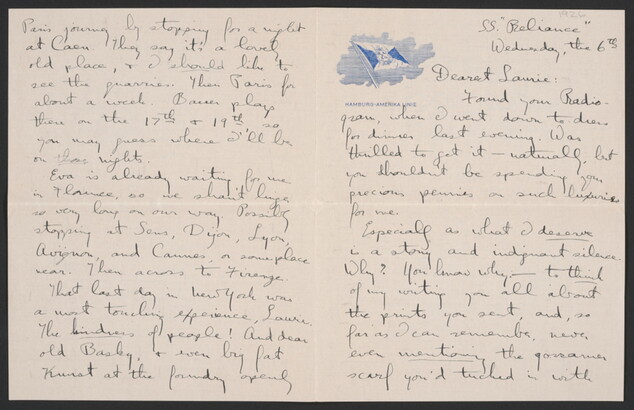 1926
SS. "Reliance"
Wednesday, the 6th
HAMBURG-AMERIKA LINIE
Dearest Laurie:
Found your Radio-
gram, when I went down to dress
for dinner last evening. Was
thrilled to get it – naturally, but
you shouldn't be spending your
precious pennies on such luxuries
for me.
Especially as what I deserve
is a stony and indignant silence.
Why? You know why, — to think
of my writing you all about
the prints you sent, and, so
far as I can remember, never
even mentioning the gossamer
scarf you'd tucked in with
Paris journey by stopping for a night
at Caen. They say it's a lovely
old place, & I should like to
see the quarries. Then Paris for
about a week. Bauer plays
there on the 17th & 19th so
you may guess where I'll be
on those nights.
Eva is already waiting for me
in Florence, so we shan't linger
so very long on our way. Possibly
stopping at Sens, Dijon, Lyon,
Avignon, and Cannes, or someplace
near. Then across to Firenze.
That last day in New York was
a most touching experience, Laurie.
The kindness of people! And dear
old Basky, & even big fat
Kunst at the foundry openly